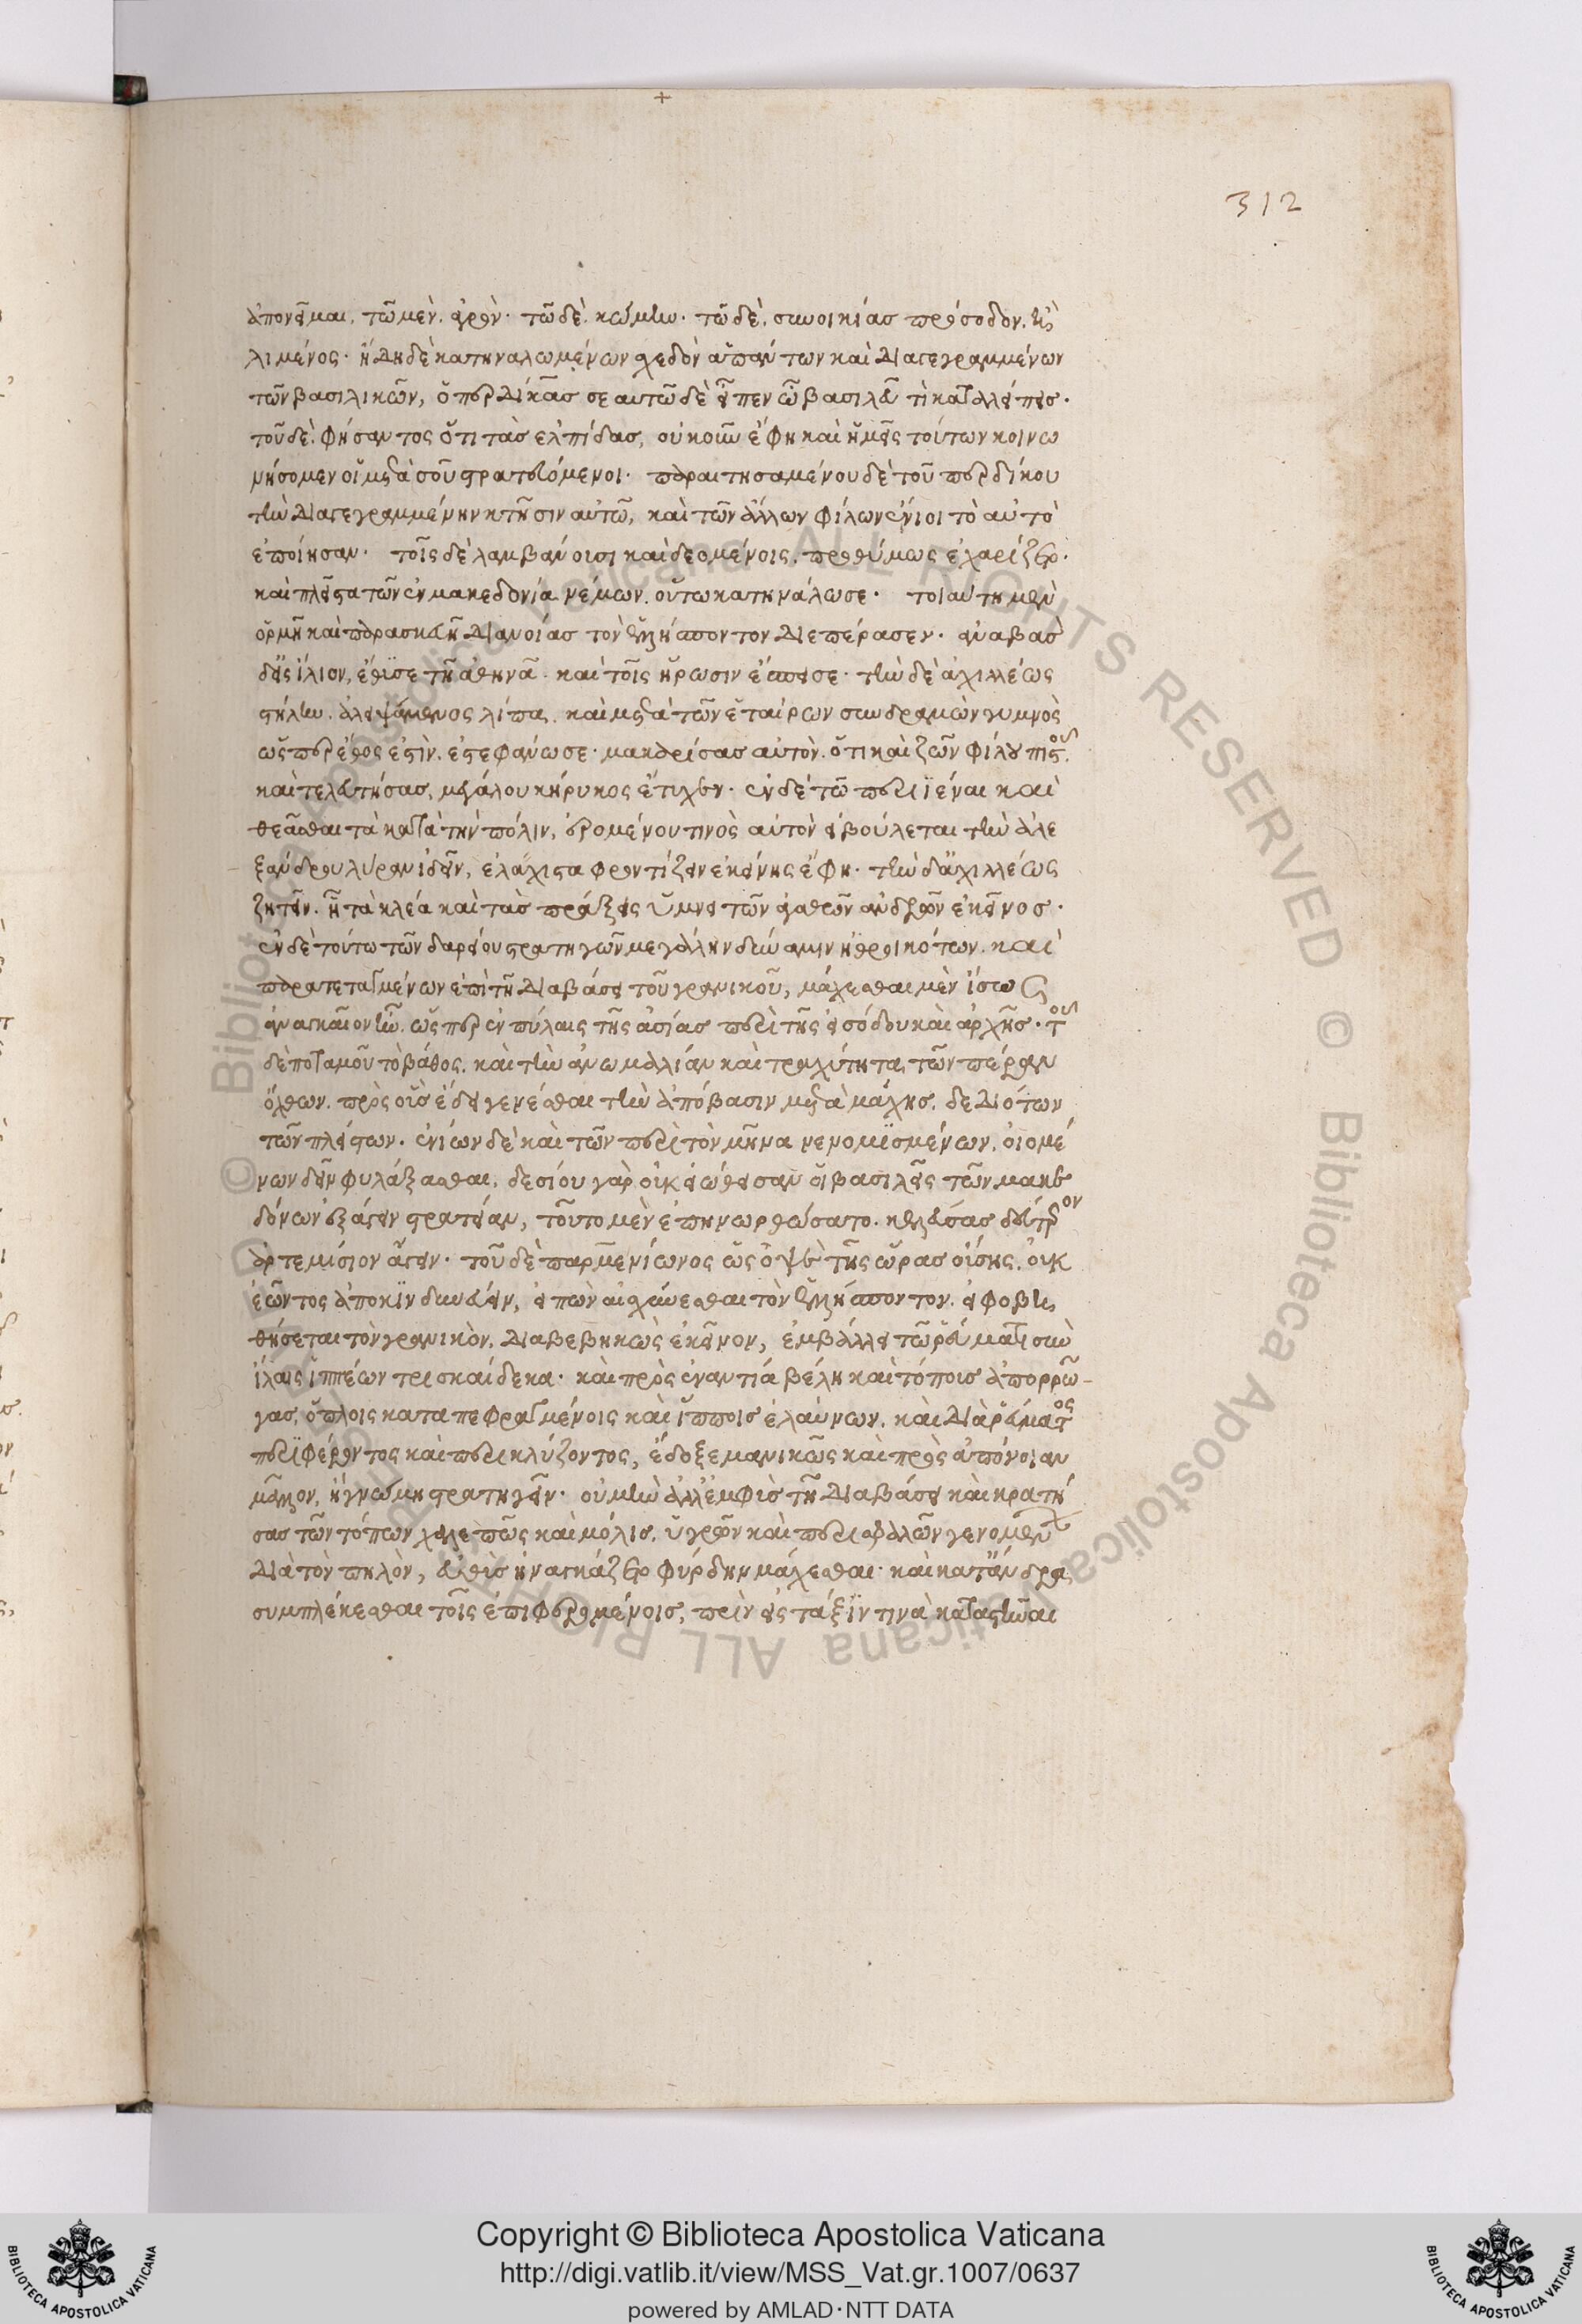 312
ἀπονεῖμαι, τῶ μὲν, ἀγρὸν· τῶ δὲ, κώμην· τῶ δὲ, συνοικίας πρόσοδον, ἢ
λιμένος· ἤδη δὲ κατηναλωμένων σχεδὸν ἁπάντων καὶ διαγεγραμμένων
τῶν βασιλικῶν, ὁ περδίκας σεαυτῶ δὲ εἶπεν ὦ βασιλεῦ τί καταλείπεις·
τοῦ δὲ φήσαντος ὅτι τὰς ἐλπίδας, οὐκοῦν ἔφη καὶ ἡμεῖς τούτων κοινω
νήσομεν οἱ μετὰ σοῦ στρατευόμενοι· παραιτησαμένου δὲ τοῦ περδίκου
τὴν διαγεγραμμένην κτῆσιν αὐτῶ, καὶ τῶν ἄλλων φίλων ἔνιοι τὸ αὐτὸ
ἐποίησαν· τοῖς δὲ λαμβάνουσι καὶ δεομένοις, προθύμως ἐχαρίζετο·
καὶ πλεῖστα τῶν ἐν μακεδονία νέμων, οὕτω κατηνάλωσε· τοιαύτη μὲν
ὁρμῆ καὶ παρασκευῆ διανοίας τὸν ἑλλήσποντον διεπέρασεν· ἀναβὰς
δ' εἰς ἴλιον, ἔθυσε τῆ ἀθηνᾶ· καὶ τοῖς ἥρωσιν ἔσπεισε· τὴν δὲ ἀχιλλέως
στήλην, ἀλειψάμενος λίπα, καὶ μετὰ τῶν ἑταίρων συνδραμὼν γυμνὸς
ὥσπερ ἔθος ἐστὶν, ἐστεφάνωσε· μακαρίσας αὐτὸν, ὅτι καὶ ζῶν φίλου πιστοῦ,
καὶ τελευτήσας, μεγάλου κήρυκος ἔτυχεν· ἐν δὲ τῶ περιϊέναι καὶ
θεᾶσθαι τὰ κατὰ τὴν πόλιν, ἐρομένου τινὸς αὐτὸν εἰ βούλεται τὴν ἀλε
ξάνδρου λύραν ἰδεῖν, ἐλάχιστα φροντίζειν ἐκείνης ἔφη· τὴν δ' ἀχιλλέως
ζητεῖν, ἧ τὰ κλέα καὶ τὰς πράξεις ὕμνει τῶν ἀγαθῶν ἀνδρῶν ἐκεῖνος·
ἐν δὲ τούτω τῶν δαρείου στρατηγῶν μεγάλην δύναμιν ἠθροικότων, καὶ
παρατεταγμένων ἐπὶ τῆ διαβάσει τοῦ γρανικοῦ, μάχεσθαι μὲν ἴσως
ἀναγκαῖον ἦν, ὥσπερ ἐν πύλαις τῆς ἀσίας περὶ τῆς εἰσόδου καὶ ἀρχῆς· τοῦ
δὲ ποταμοῦ τὸ βάθος, καὶ τὴν ἀνωμαλίαν καὶ τραχύτητα τῶν πέραν
ὄχθων, πρὸς οὓς ἔδει γενέσθαι τὴν ἀπόβασιν μετὰ μάχης, δεδιότων
τῶν πλείστων· ἐνίων δὲ καὶ τῶν περὶ τὸν μῆνα νενομισμένων, οἰομέ
νων δεῖν φυλάξασθαι, δεσίου γὰρ οὐκ εἰώθεισαν οἱ βασιλεῖς τῶν μακε
δόνων ἐξάγειν στρατείαν, τοῦτο μὲν ἐπηνωρθώσατο, κελεύσας δεύτερον
ἀρτεμίσιον ἄγειν· τοῦ δὲ παρμενίωνος ὡς ὀψὲ τῆς ὥρας οὔσης, οὐκ
ἐῶντος ἀποκινδυνεύειν, εἰπὼν αἰσχύνεσθαι τὸν ἑλλήσποντον, εἰ φοβη
θήσεται τὸν γρανικὸν, διαβεβηκὼς ἐκεῖνον, ἐμβάλλει τῶ ῥεύματι σὺν
ἴλαις ἱππέων τρισκαίδεκα· καὶ πρὸς ἐναντία βέλη καὶ τόπους ἀπορρῶ-
γας, ὅπλοις καταπεφραγμένοις καὶ ἵπποις ἐλαύνων, καὶ διὰ ῥεύματος
περιφέροντος καὶ περικλύζοντος, ἔδοξε μανικῶς καὶ πρὸς ἀπόνοιαν
μᾶλλον, ἢ γνώμη στρατηγεῖν· οὐ μὴν ἀλλ' ἐμφὺς τῆ διαβάσει καὶ κρατή
σας τῶν τόπων χαλεπῶς καὶ μόλις, ὑγρῶν καὶ περισφαλῶν γενομένων
διὰ τὸν πηλὸν, εὐθὺς ἠναγκάζετο φύρδην μάχεσθαι· καὶ κατ' ἄνδρα
συμπλέκεσθαι τοῖς ἐπιφερομένοις, πρὶν εἰς τάξιν τινὰ καταστῆναι
© Biblioteca Apostolica Vaticana ALL RIGHTS RESERVED
© Biblioteca Apostolica Vaticana ALL RIGHTS RESERVED
Copyright © Biblioteca Apostolica Vaticana
http://digi.vatlib.it/view/MSS_Vat.gr.1007/0637
powered by AMLAD·NTT DATA
BIBLIOTECA APOSTOLICA VATICANA
BIBLIOTECA APOSTOLICA VATICANA